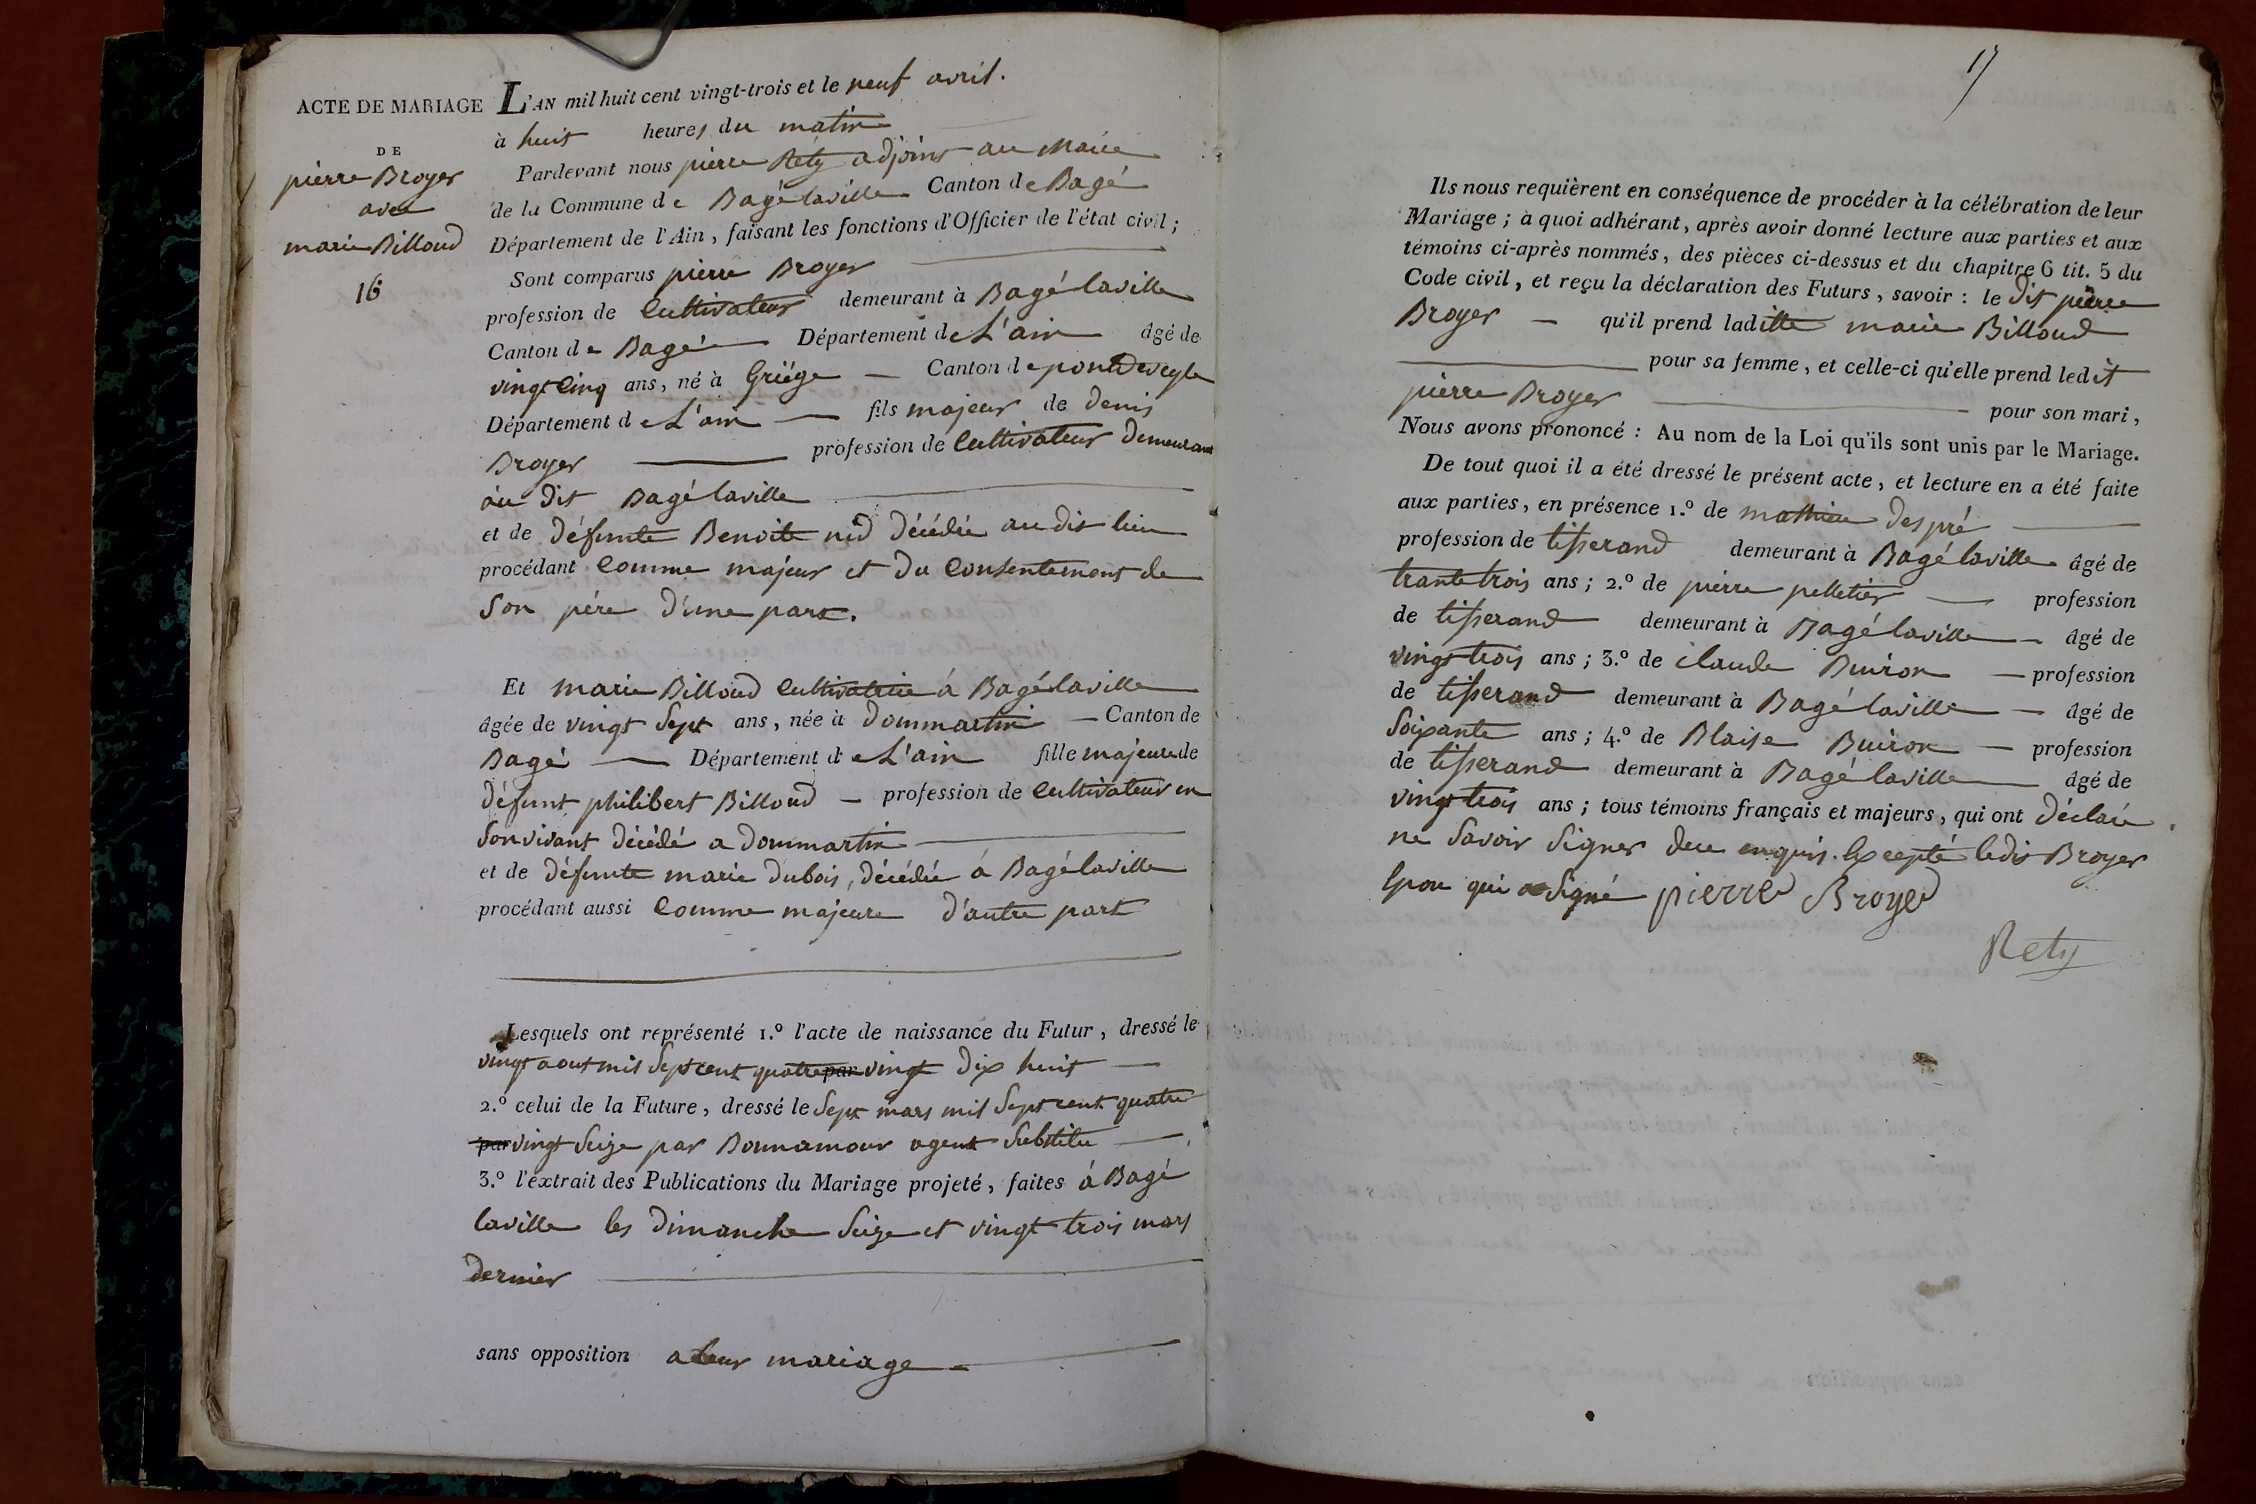 ACTE DE MARIAGE
DE
pierre Broyer
avec
marie Billoud
16
L'AN mil huit cent vingt-trois et le neuf avril.
à huit heures du matin
Pardevant nous pierre Rety adjoint au Maire
de la Commune de Bagé laville Canton de Bagé
Département de l'Ain, faisant les fonctions d'Officier de l'état civil;
Sont comparus pierre Broyer
profession de Cultivateur demeurant à Bagé laville
Canton de Bagé Département de L'ain âgé de
vingt Cinq ans, né à Griége Canton de pontdeveyle
Département de L'ain fils majeur de denis
Broyer profession de Cultivateur demeurant
au dit Bagé laville
et de défunte Benoite nid décédée au dit lieu
procédant Comme majeur et du Consentement de
Son pére d'une part.
Et marie Billoud Cultivatrice á Bagé laville
âgée de vingt Sept ans, née à dommartin Canton de
Bagé Département de L'ain fille majeure de
défunt philibert Billoud profession de Cultivateur en
Son vivant décédé a dommartin
et de défunte marie dubois, décédée á Bagé laville
procédant aussi Comme majeure d'autre part
Lesquels ont représenté 1.º l'acte de naissance du Futur, dressé le
vingt aout mil Sept cent quatre par vingt dix huit
2.º celui de la Future, dressé le Sept mars mil Sept cent quatre
par vingt Seize par Bonnamour agent Substitu
3.º l'extrait des Publications du Mariage projeté, faites á Bagé
laville les dimanche Seize et vingt trois mars
dernier
sans opposition a leur mariage
17
Ils nous requièrent en conséquence de procéder à la célébration de leur
Mariage; à quoi adhérant, après avoir donné lecture aux parties et aux
témoins ci-après nommés, des pièces ci-dessus et du chapitre 6 tit. 5 du
Code civil, et reçu la déclaration des Futurs, savoir: le dit pierre
Broyer qu'il prend laditte marie Billoud
pour sa femme, et celle-ci qu'elle prend ledit
pierre Broyer pour son mari,
Nous avons prononcé: Au nom de la Loi qu'ils sont unis par le Mariage.
De tout quoi il a été dressé le présent acte, et lecture en a été faite
aux parties, en présence 1.º de mathieu despré
profession de tisserand demeurant à Bagé laville âgé de
trante trois ans; 2.º de pierre pelletier profession
de tisserand demeurant à Bagé laville âgé de
vingt trois ans; 3.º de claude Buiron profession
de tisserand demeurant à Bagé laville âgé de
Soixante ans; 4.º de Blaise Buiron profession
de tisserand demeurant à Bagé laville âgé de
vingt trois ans; tous témoins français et majeurs, qui ont déclaré
ne Savoir Signer de ce enquis. Excepté ledit Broyer
Epou qui a Signé pierre Broyer
Rety